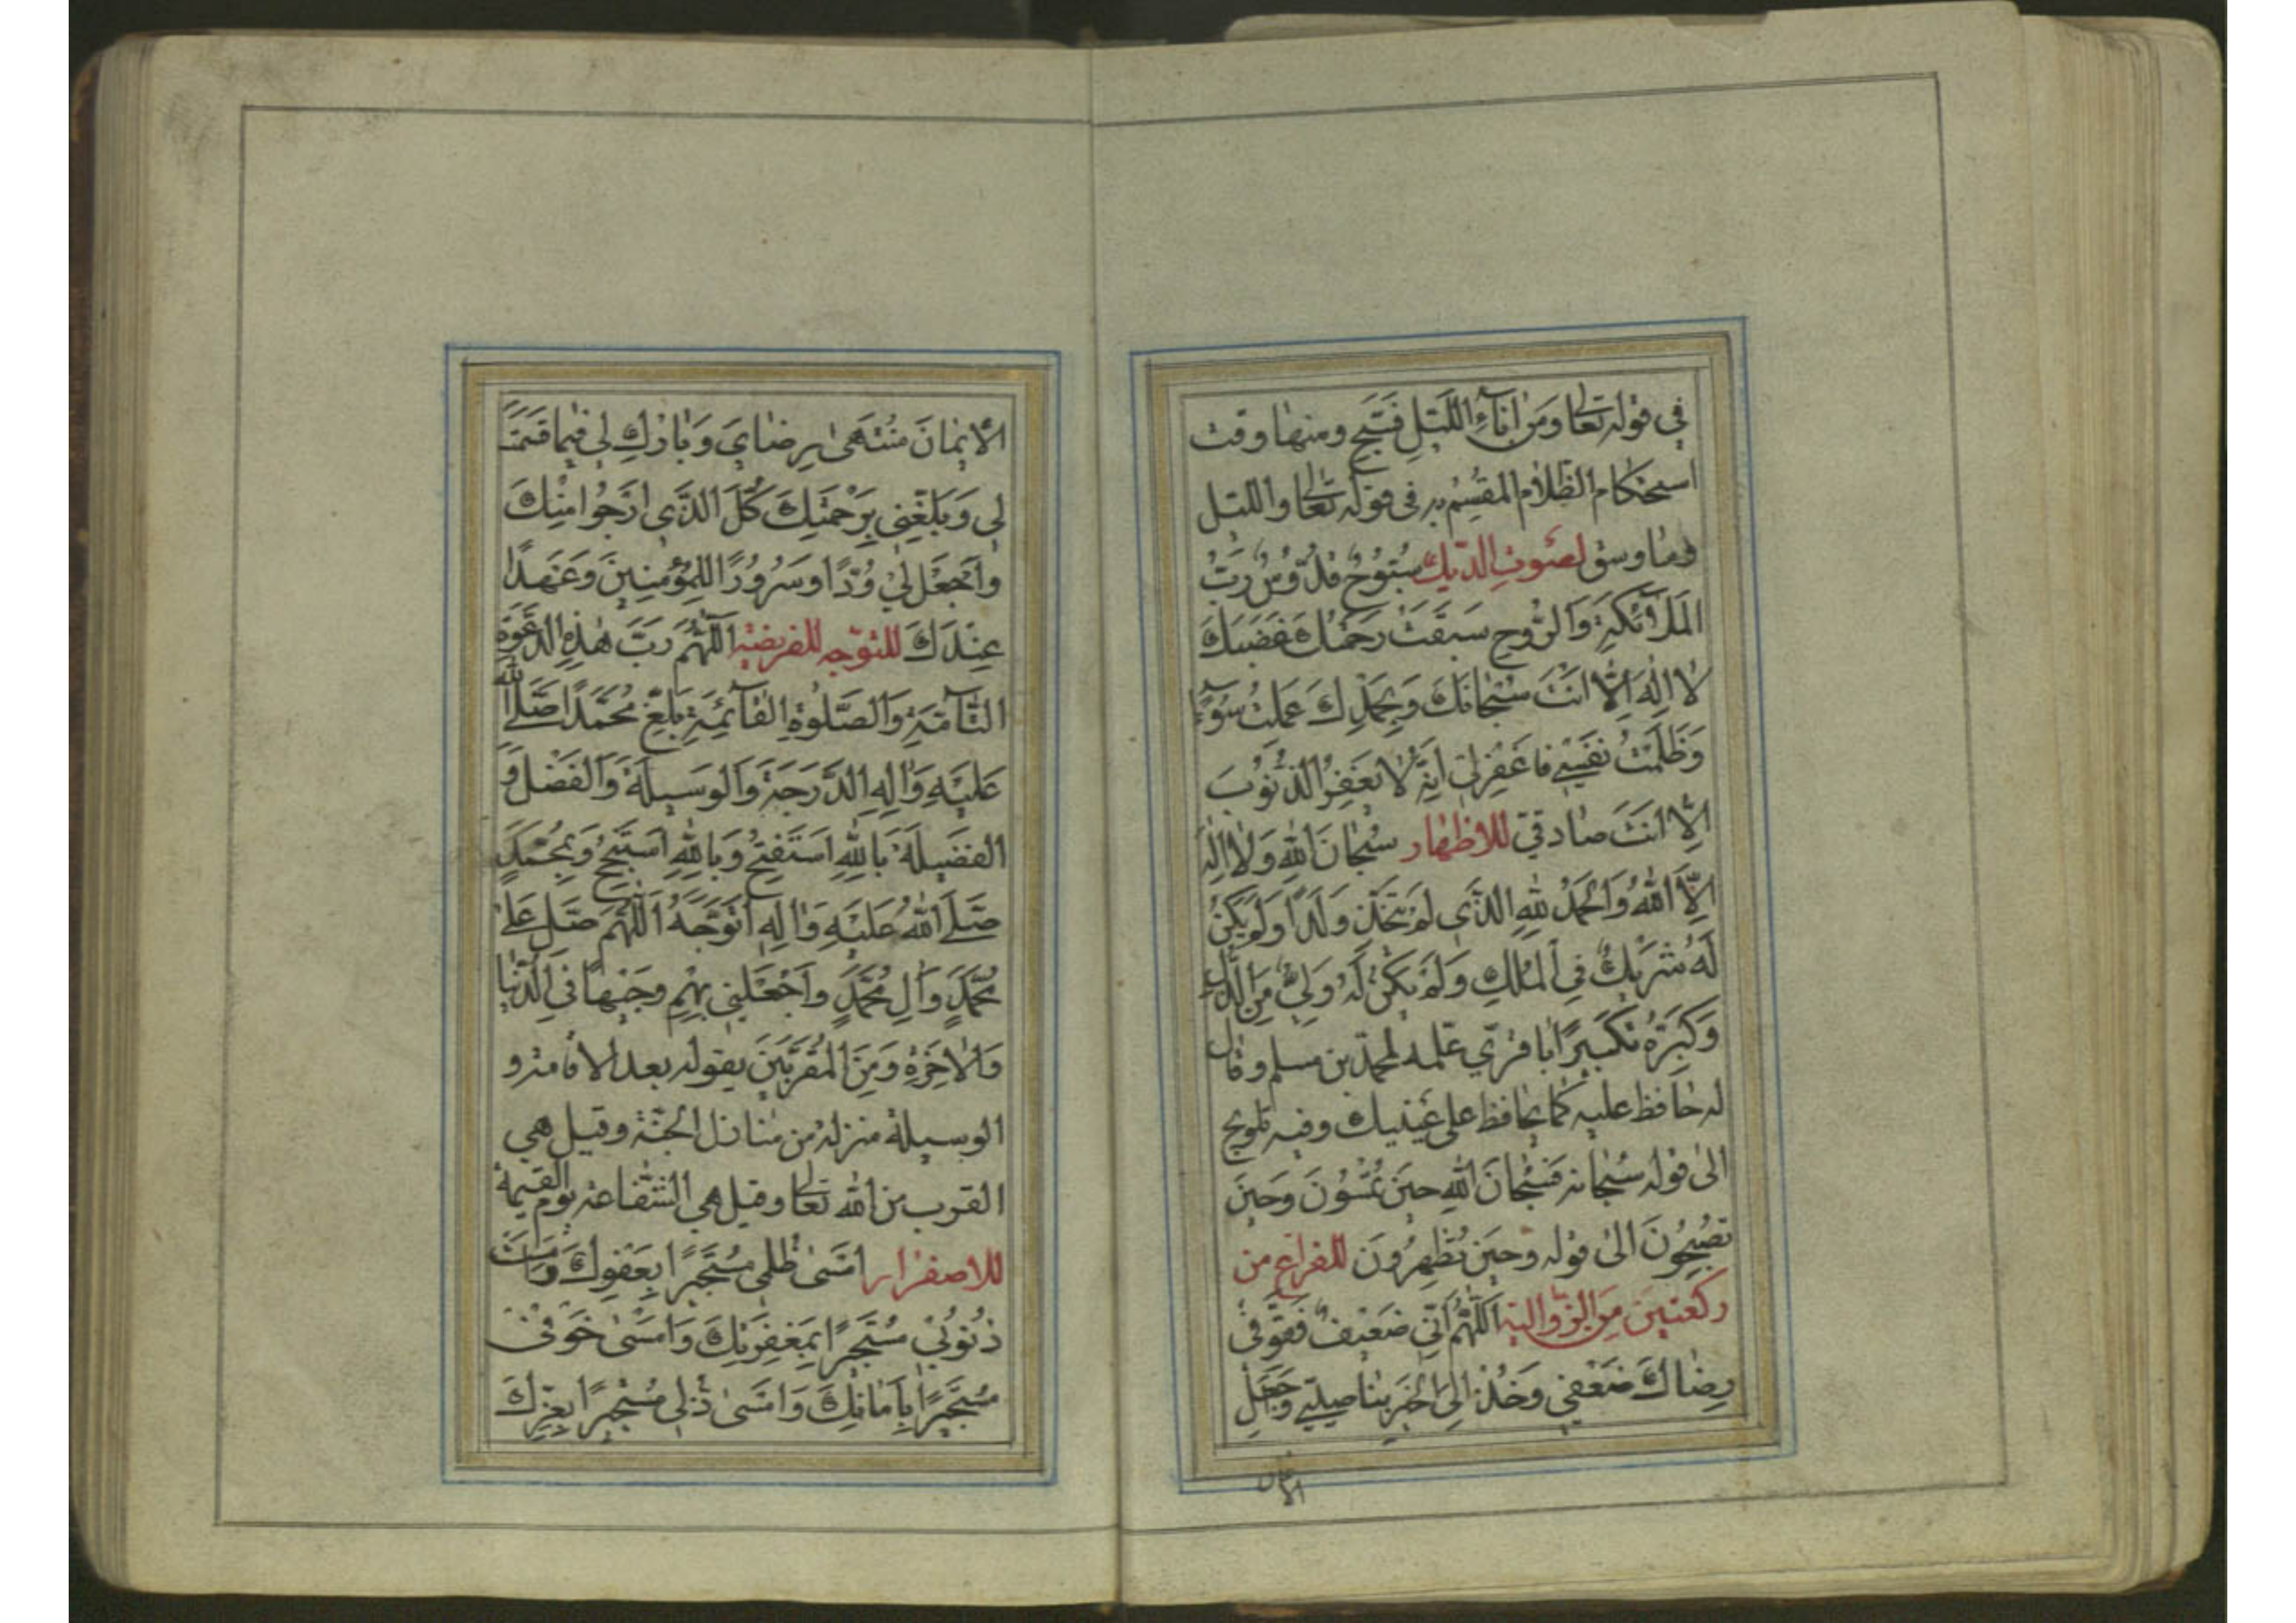 في قوله تعالى وَمِنْ اٰنَآءِ اللَّيْلِ فَسَبِّحْ ومنها وقت
استحكام الظلام المقسم به فى قوله تعالى والليل
وما وسق لصَوتِ الديك سُبُّوحٌ قُدُّوسٌ رَبُّ
المَلآئكَةِ وَالرُّوحِ سَبَقَتْ رَحْمَتُكَ غَضَبَكَ
لا اِلٰهَ اِلّا اَنْتَ سُبْحَانَكَ وَبِحَمْدِكَ عَمِلْتُ سُوءً
وَظَلَمْتُ نَفْسِي فاغْفِرْلي اِنَّهُ لا يَغْفِرُ الذُّنُوبَ
اِلّا اَنْتَ صادقيّ للاظهار سُبْحانَ اللهِ وَلا اِلٰهَ
اِلَّا اللهُ وَالحَمْدُ لِلّٰهِ الَّذي لَمْ يَتَّخِذْ وَلَدًا وَلَمْ يَكُنْ
لَهُ شَرِيكٌ فِي المُلْكِ وَلَمْ يَكُنْ لَهُ وَلِيٌّ مِنَ الذُّلِّ
وَكَبِّرْهُ تَكْبِيرًا باقريّ علّمه لمحمّد بن مسلم وقال
له حافظ عليه كما يحافظ على عَيْنيك وفيه تلويح
الى قوله سُبحانه فَسُبْحانَ اللهِ حينَ تُمْسُونَ وَحينَ
تُصْبِحُونَ الى قوله وَحينَ تُظْهِرُونَ للفراغ من
ركعتين مِنَ الزّواليّة اَللّٰهُمَّ اِنّي ضَعيفٌ فَقَوِّ فى
رِضَاكَ ضَعْفي وَخُذْ اِلَى الخَيْرِ بِنَاصِيَتِي وَاجْعَلِ
الايمان
الاِيمَانَ مُنْتَهىٰ رِضَايَ وَبَارِكْ لي فيما قَسَمْتَ
لي وَبَلِّغْنِي بِرَحْمَتِكَ كُلَّ الَّذي اَرْجُوا مِنْكَ
وَاجْعَلْ لي وُدًّا وَسُرُورًا لِلْمُؤْمِنينَ وَعَهْدًا
عِنْدَكَ للتّوجّه للفريضة اَللّٰهُمَّ رَبَّ هٰذِهِ الدَّعْوَةِ
التَّآمَّةِ وَالصَّلوٰةِ القآئِمَةِ بَلِّغْ مُحَمَّدًا صَلَّى اللهُ
عَلَيْهِ وَاٰلِهِ الدَّرَجَةَ وَالوَسيلَةَ وَالفَضْلَ وَ
الفَضيلَةَ بِاللهِ اَسْتَفْتِحُ وَبِاللهِ اَسْتَنْجِحُ وَبِمُحَمَّدٍ
صَلَّى اللهُ عَلَيْهِ وَاٰلِهِ اَتَوَجَّهُ اَللّٰهُمَّ صَلِّ عَلىٰ
مُحَمَّدٍ وَاٰلِ مُحَمَّدٍ وَاجْعَلْني بِهِمْ وَجيهًا فِي الدُّنْيا
وَالاٰخِرَةِ وَمِنَ المُقَرَّبينَ يقوله بعد الاقامة و
الوسيلة منزلة من منازل الجنّة وقيل هي
القرب من الله تعالى وقيل هي الشفاعة يوم القيمة
للاصفرار اَمْسىٰ ظُلْمي مُسْتَجيرًا بِعَفْوِكَ وَاَمْسَتْ
ذُنُوبي مُسْتَجيرًا بِمَغْفِرَتِكَ وَاَمْسىٰ خَوْفى
مُسْتَجيرًا بِاَمَانِكَ وَاَمْسىٰ ذُلّي مُسْتَجيرًا بِعِزِّكَ